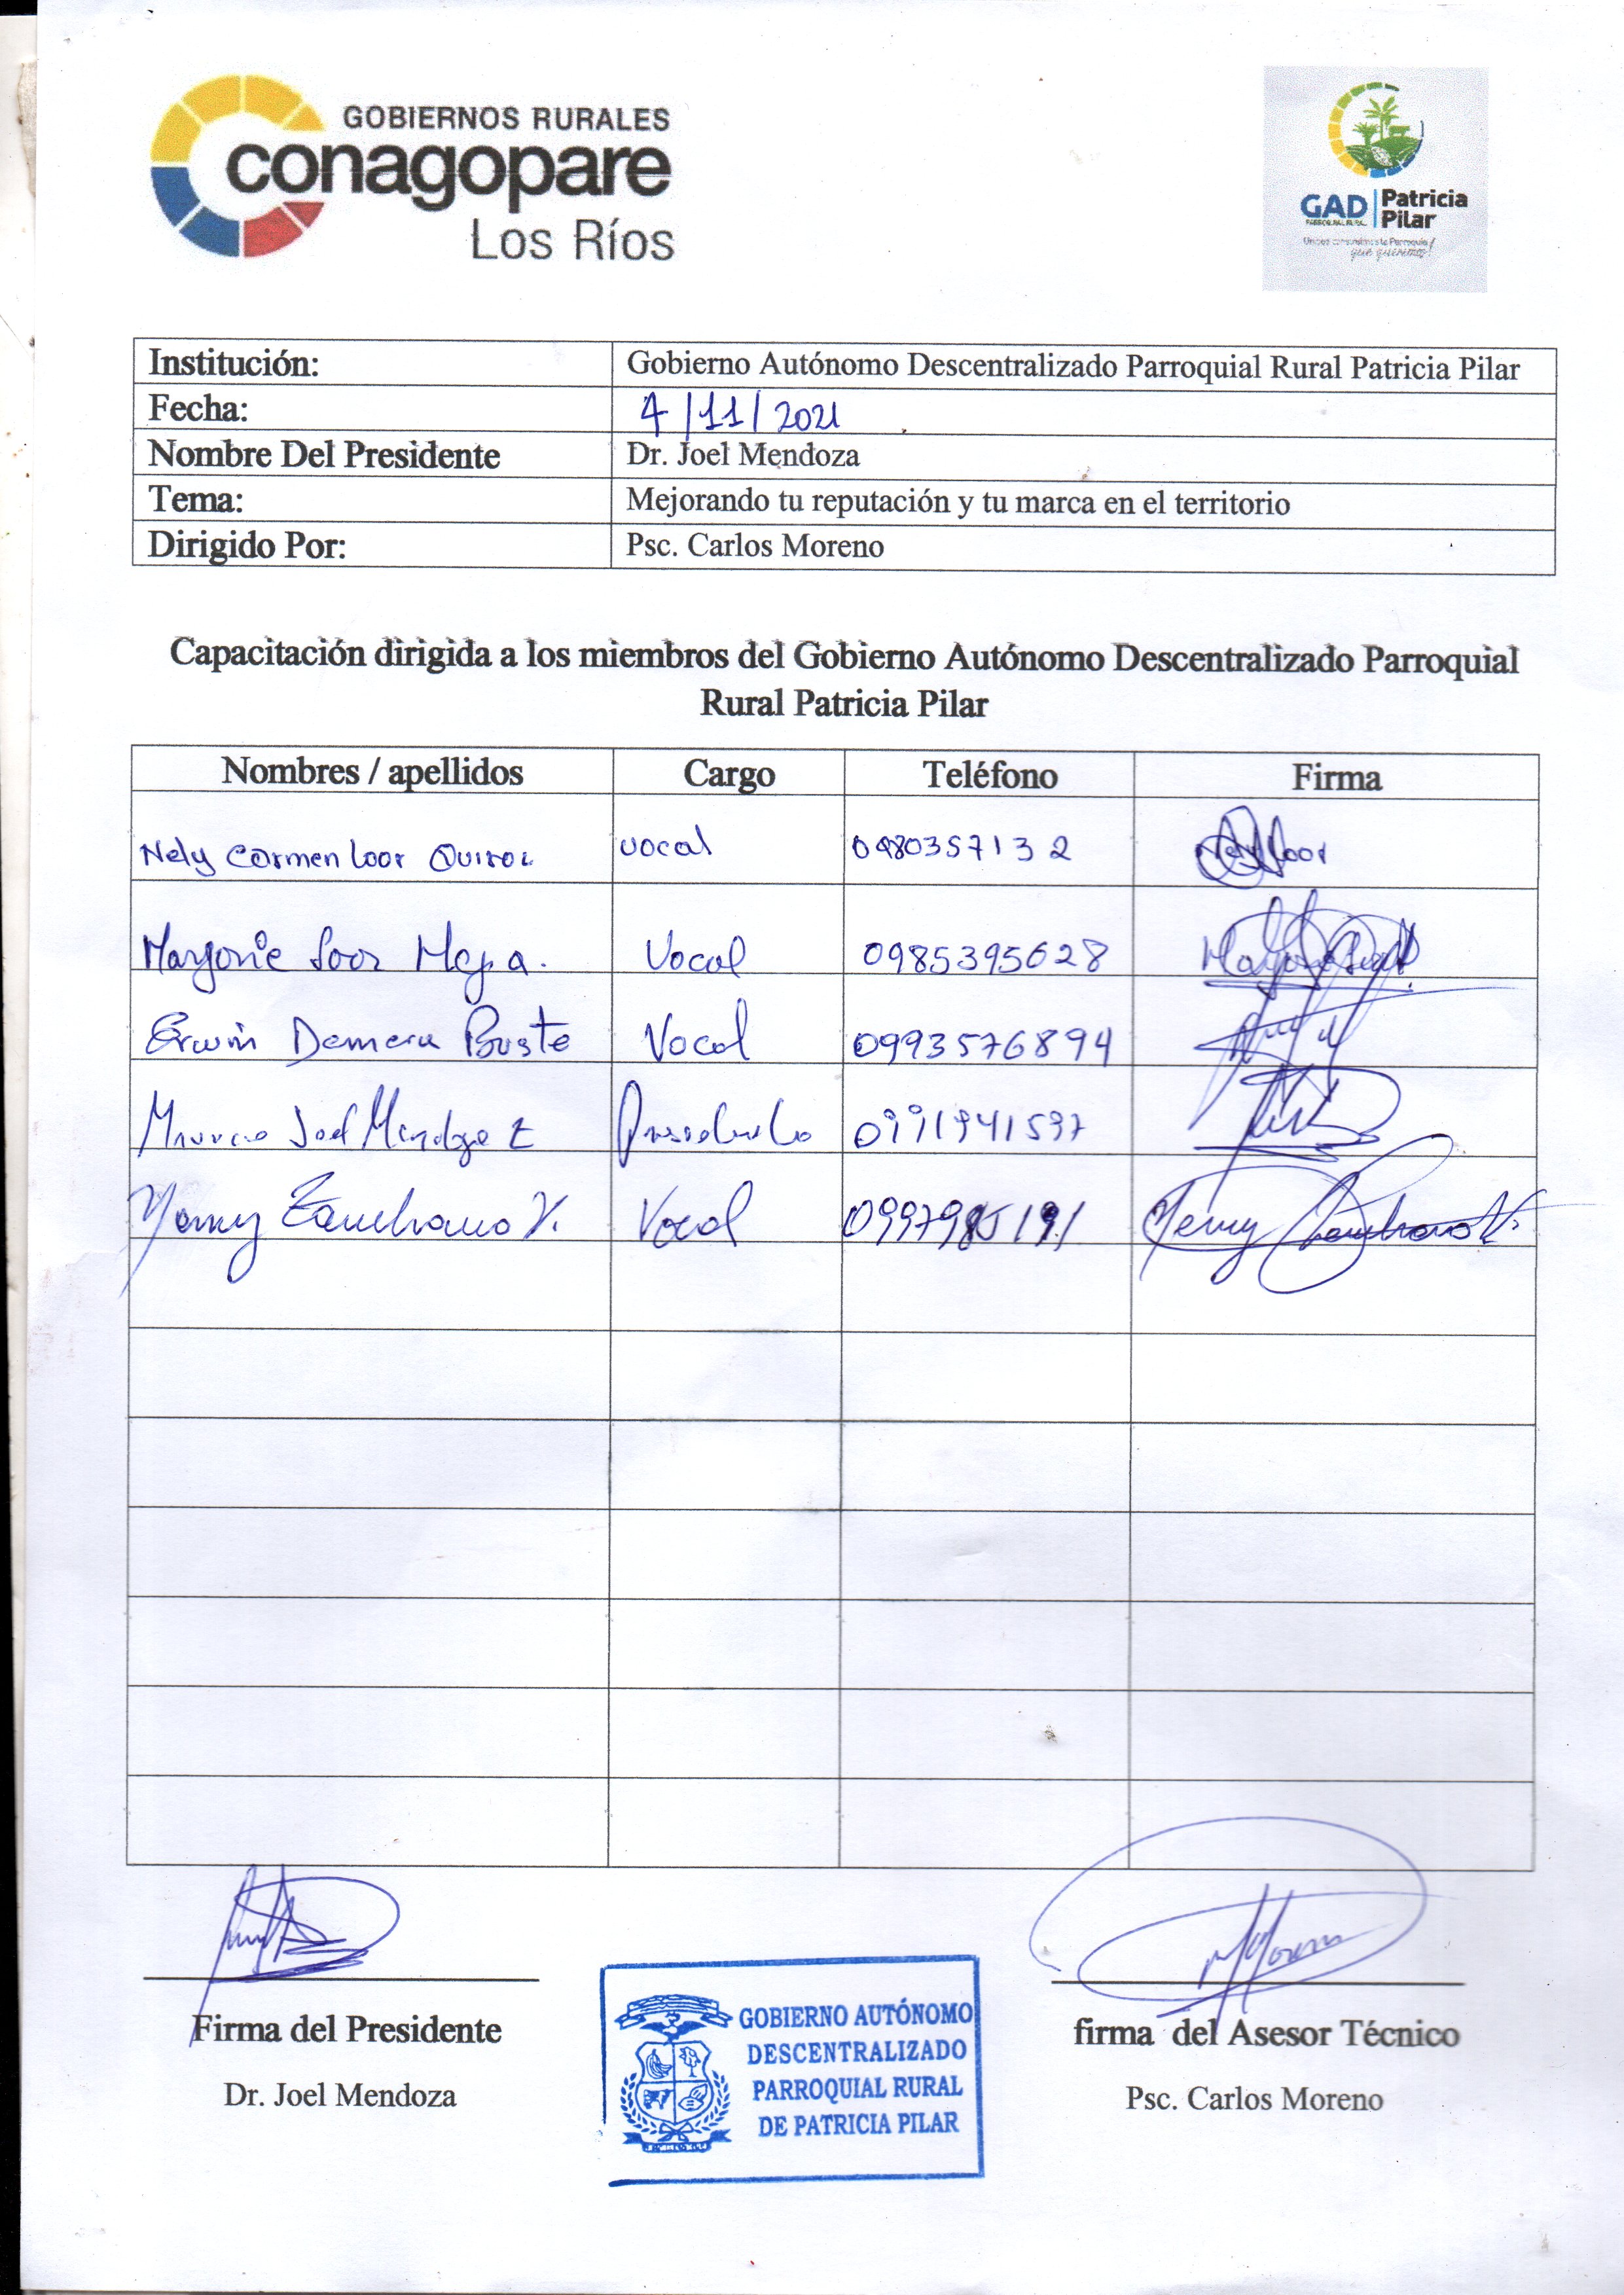 GOBIERNOS RURALES
conagopare
Los Ríos
GAD Patricia
Pilar
que queremos!
Institución: Gobierno Autónomo Descentralizado Parroquial Rural Patricia Pilar
Fecha: 4/11/2021
Nombre Del Presidente Dr. Joel Mendoza
Tema: Mejorando tu reputación y tu marca en el territorio
Dirigido Por: Psc. Carlos Moreno
Capacitación dirigida a los miembros del Gobierno Autónomo Descentralizado Parroquial
Rural Patricia Pilar
Nombres / apellidos Cargo Teléfono Firma
Nely Carmen Loor vocal 0980357132 Loor
Marjorie Loor Vocal 0985395628
Erwin Demera Vocal 0993576894
Joel Mendoza Z Presidente 0991941597
Yenny Zambrano V. Vocal 0997985191 Yenny Zambrano V.
Firma del Presidente
Dr. Joel Mendoza
GOBIERNO AUTÓNOMO
DESCENTRALIZADO
PARROQUIAL RURAL
DE PATRICIA PILAR
firma del Asesor Técnico
Psc. Carlos Moreno